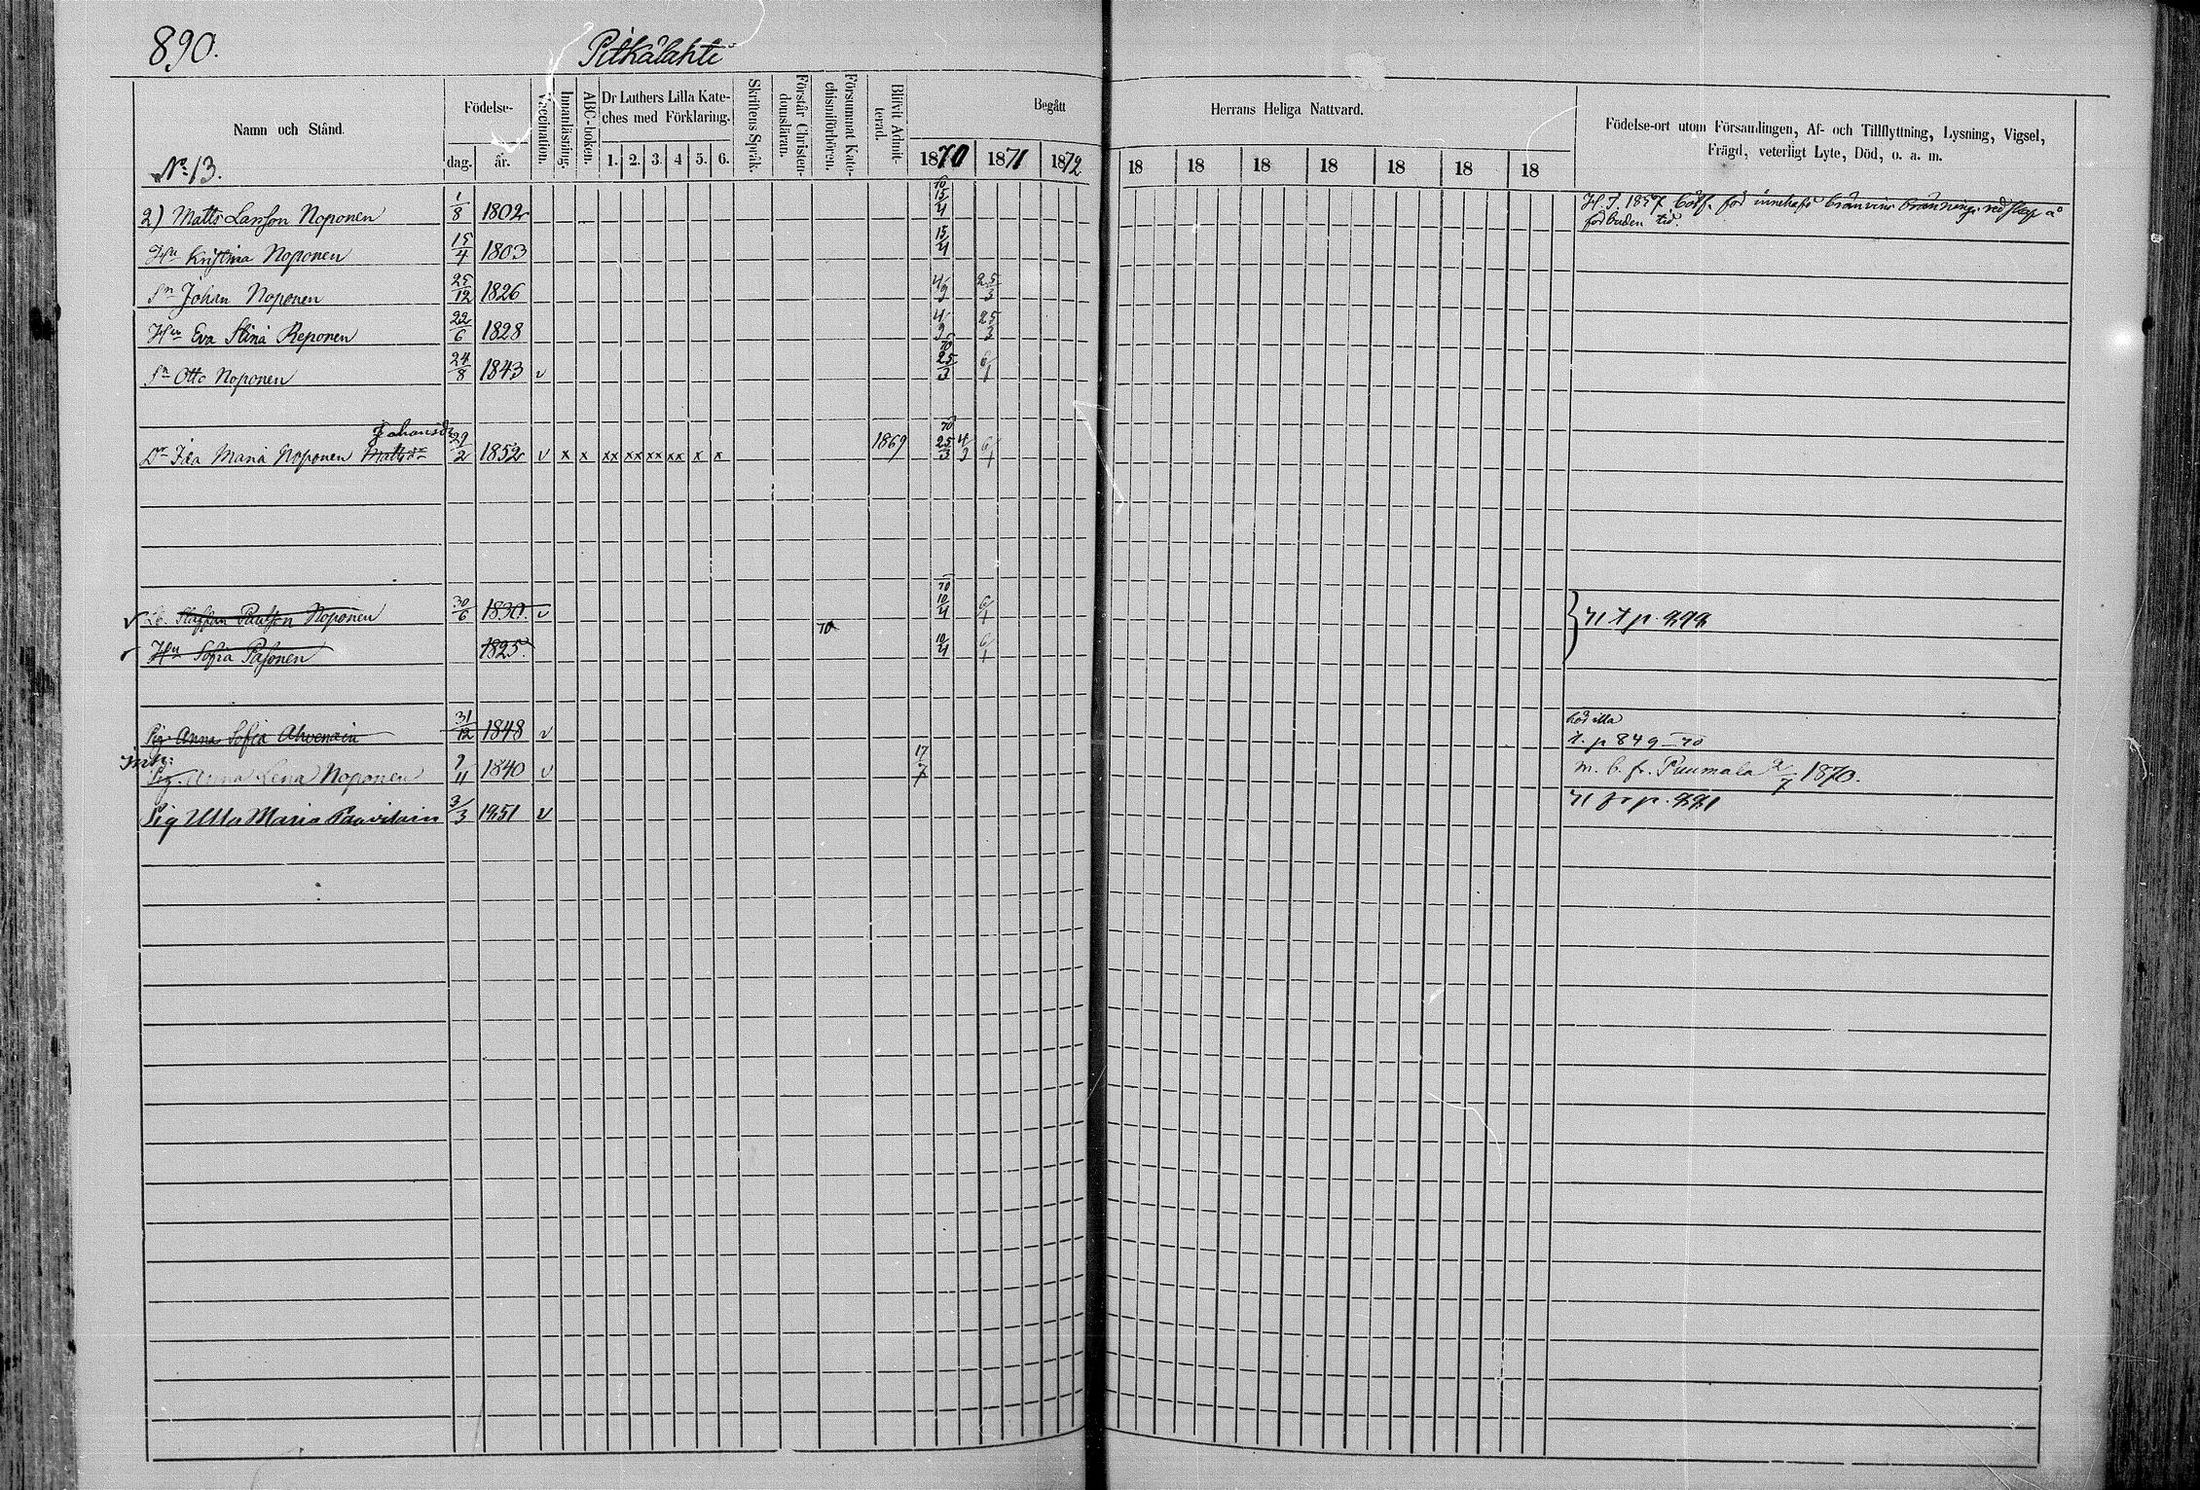 890.
Pitkälahti
Namn och Stånd.
No 13.
Födelse-
dag.
år.
Vaccination.
Innanläsning.
ABC-boken.
Dr Luthers Lilla Kate-
ches med Förklaring.
1. 2. 3. 4 5. 6.
Skriftens Språk.
Förstår Christen-
domsläran.
Försummat Kate-
chismiförhören.
Blifvit Admit-
terad.
Begått
Herrans Heliga Nattvard.
1870 1871 1872 18 18 18 18 18 18 18
Födelse-ort utom Församlingen, Af- och Tillflyttning, Lysning, Vigsel,
Frägd, veterligt Lyte, Död, o. a. m.
2) Matts Larsson Noponen 1/8 1802 15/4
förbuden tid.
Hu Kristina Noponen 15/4 1803 15/4
Sn Johan Noponen 25/12 1826 4/9 25/3
Hu Eva Stina Reponen 22/6 1828 4/9 25/3
Sn Otto Noponen 24/8 1843 v 70 25/3 6/1
Johansdr
Dr Ida Maria Noponen Mattsdr 29/2 1852 v x x xx xx xx xx x x 1869 70 25/3 4/9 6/1
Staffan Paulsson Noponen 30/6 1830. v 70 10/4 6/1 71 t p. 892
Hu Sofia Pasonen 1825. 70 10/4 6/1
Pig Anna Sofia Ahvenain 31/12 1848 v
t. p 849 - 70
Pig. Anna Lena Noponen 9/11 1840 v 17/7 m. b. fr. Puumala 2/7 1870.
Pig Ulla Maria Paavilain 3/3 1851 v 71 fr p. 891